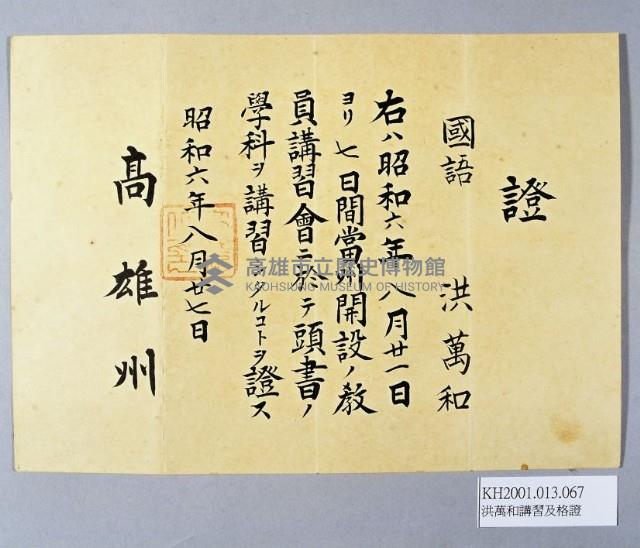 證
國語 洪萬和
右ハ昭和六年八月廿一日
ヨリ七日間當州開設ノ教
員講習會ニ於テ頭書ノ
學科ヲ講習シタルコトヲ證ス
昭和六年八月廿七日
高雄州
高雄市立歷史博物館
KAOHSIUNG MUSEUM OF HISTORY
KH2001.013.067
洪萬和講習及格證